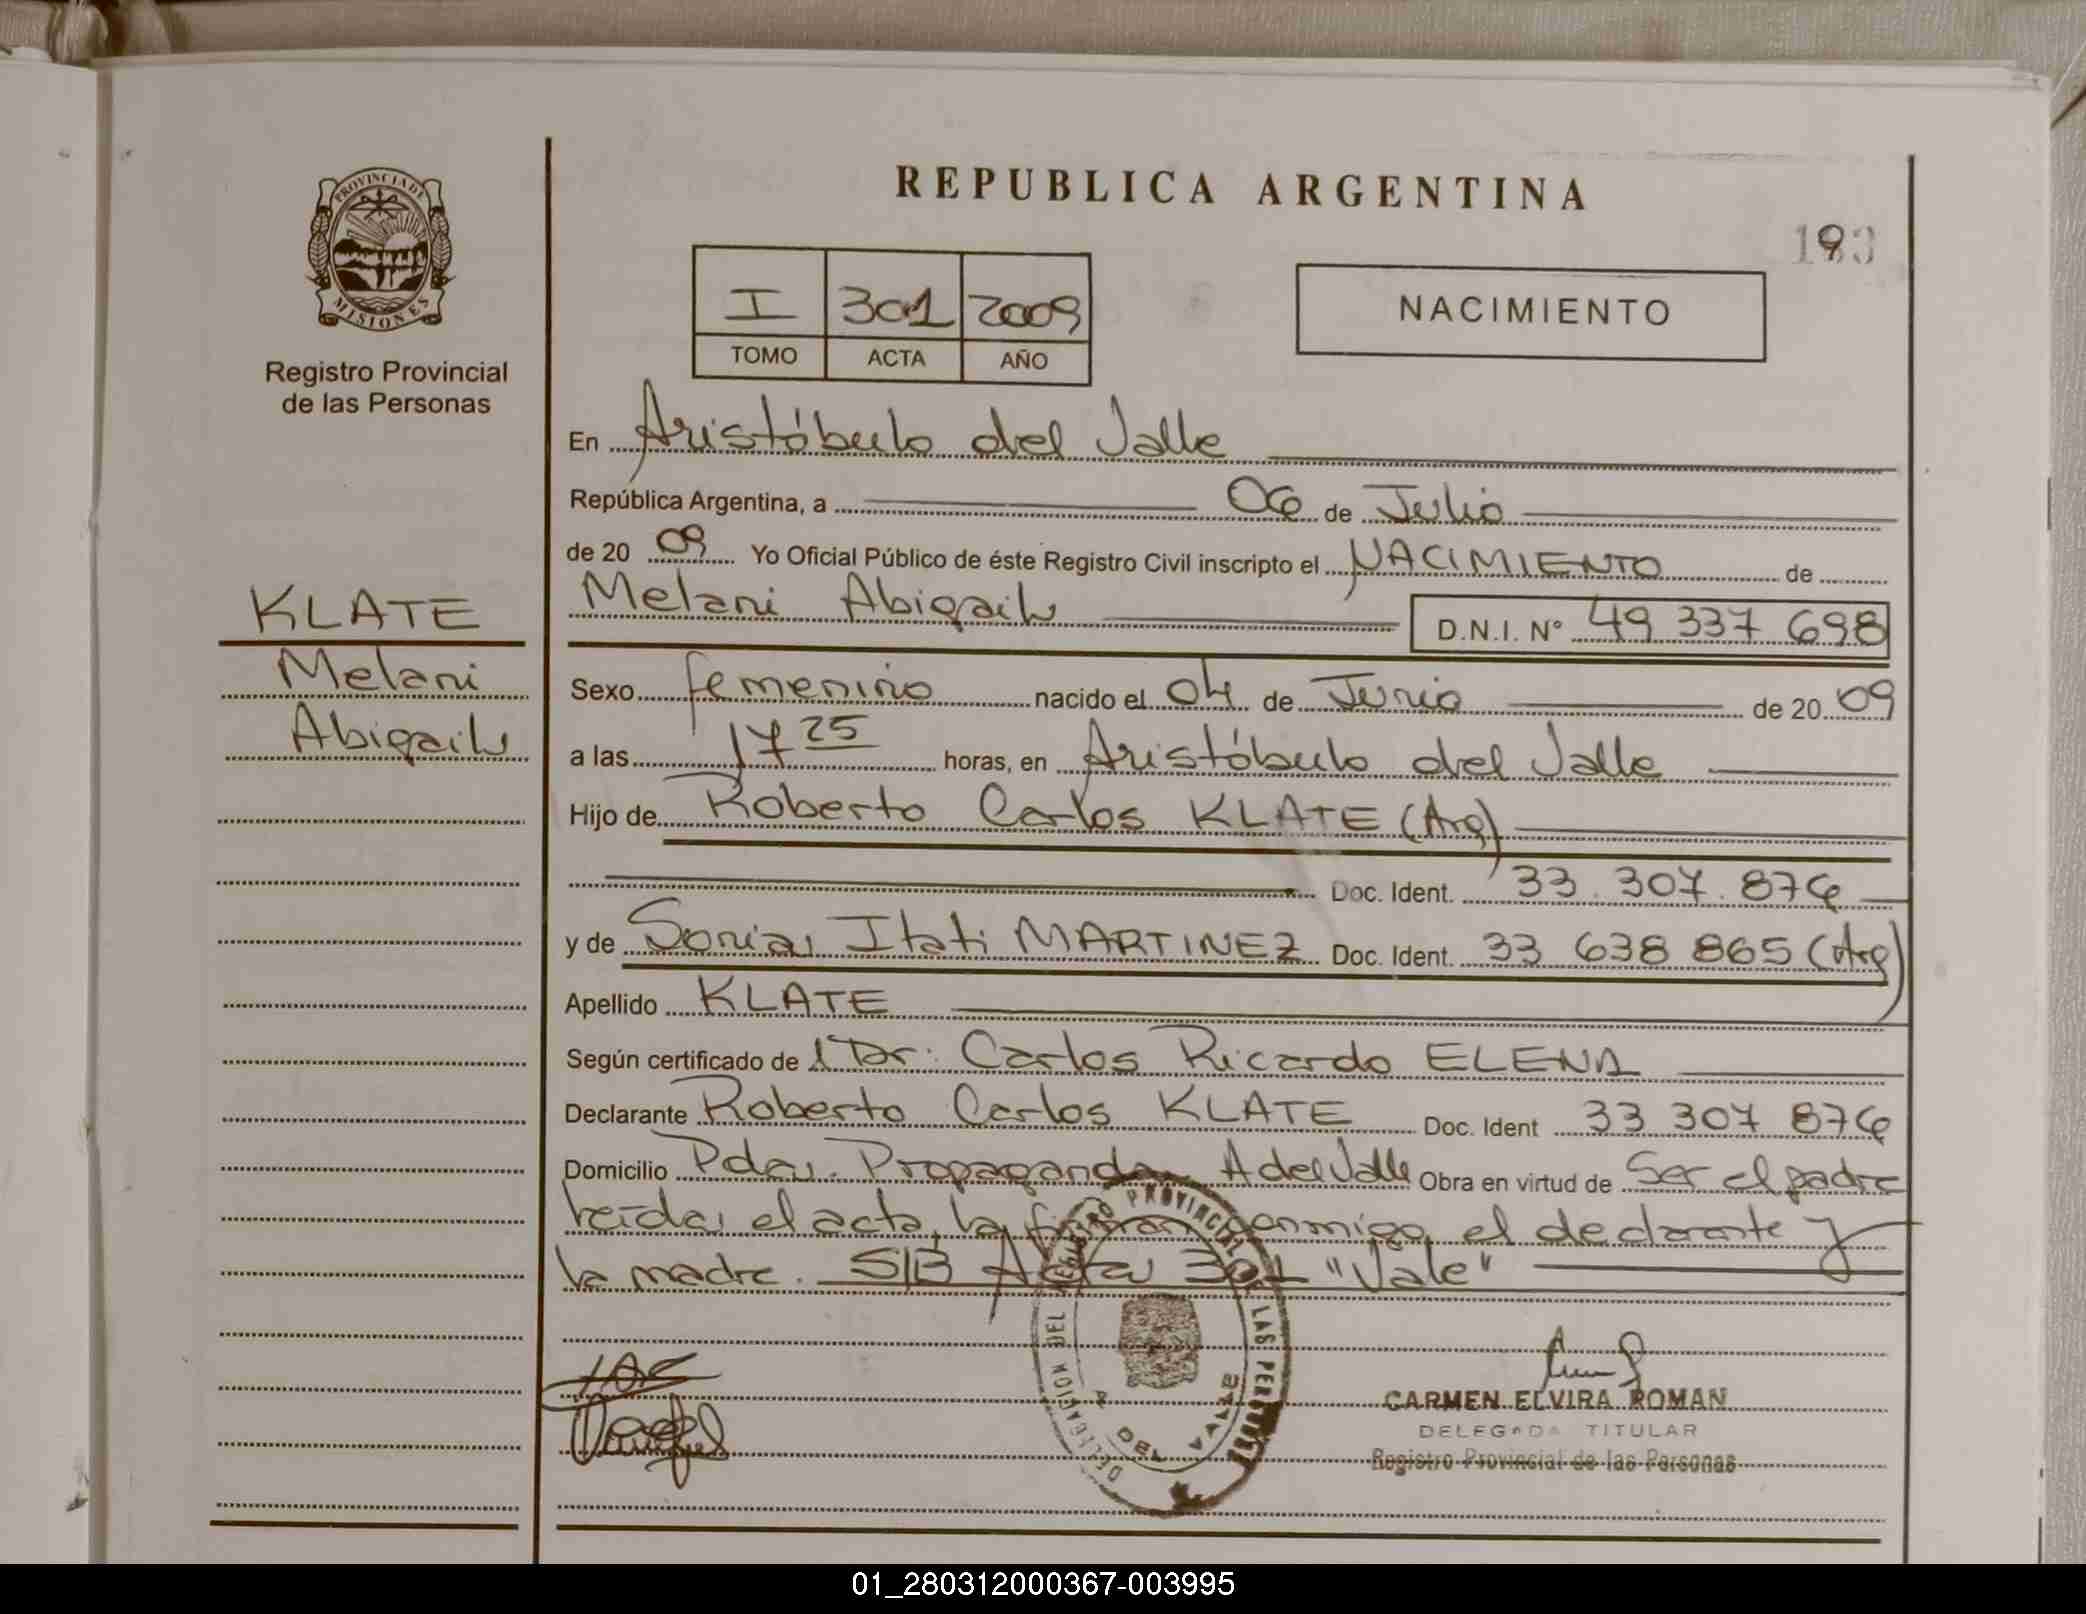 REPUBLICA ARGENTINA
PROVINCIA DE
MISIONES
Registro Provincial
de las Personas
I 301 2009
TOMO ACTA AÑO
NACIMIENTO
En Aristóbulo del Valle
República Argentina, a 06 de Julio
de 20 09 Yo Oficial Público de éste Registro Civil inscripto el NACIMIENTO de
Melani Abigail D.N.I. N° 49 337 698
KLATE
Melani
Abigail
Sexo femenino nacido el 04 de Junio de 20 09
a las 17 25 horas, en Aristóbulo del Valle
Hijo de Roberto Carlos KLATE (Arg)
Doc. Ident. 33.307.876
y de Sonia Itati MARTINEZ Doc. Ident. 33 638 865 (Arg)
Apellido KLATE
Según certificado de l Dr: Carlos Ricardo ELENA
Declarante Roberto Carlos KLATE Doc. Ident 33 307 876
Domicilio Pda. Propaganda A del Valle Obra en virtud de Ser el padre
leída el acta, la firman conmigo el declarante y
la madre. S/B Acta 301 "Vale"
DELEGACION DEL REGISTRO PROVINCIAL DE LAS PERSONAS
A. DEL VALLE
CARMEN ELVIRA ROMAN
DELEGADA TITULAR
Registro Provincial de las Personas
01_280312000367-003995